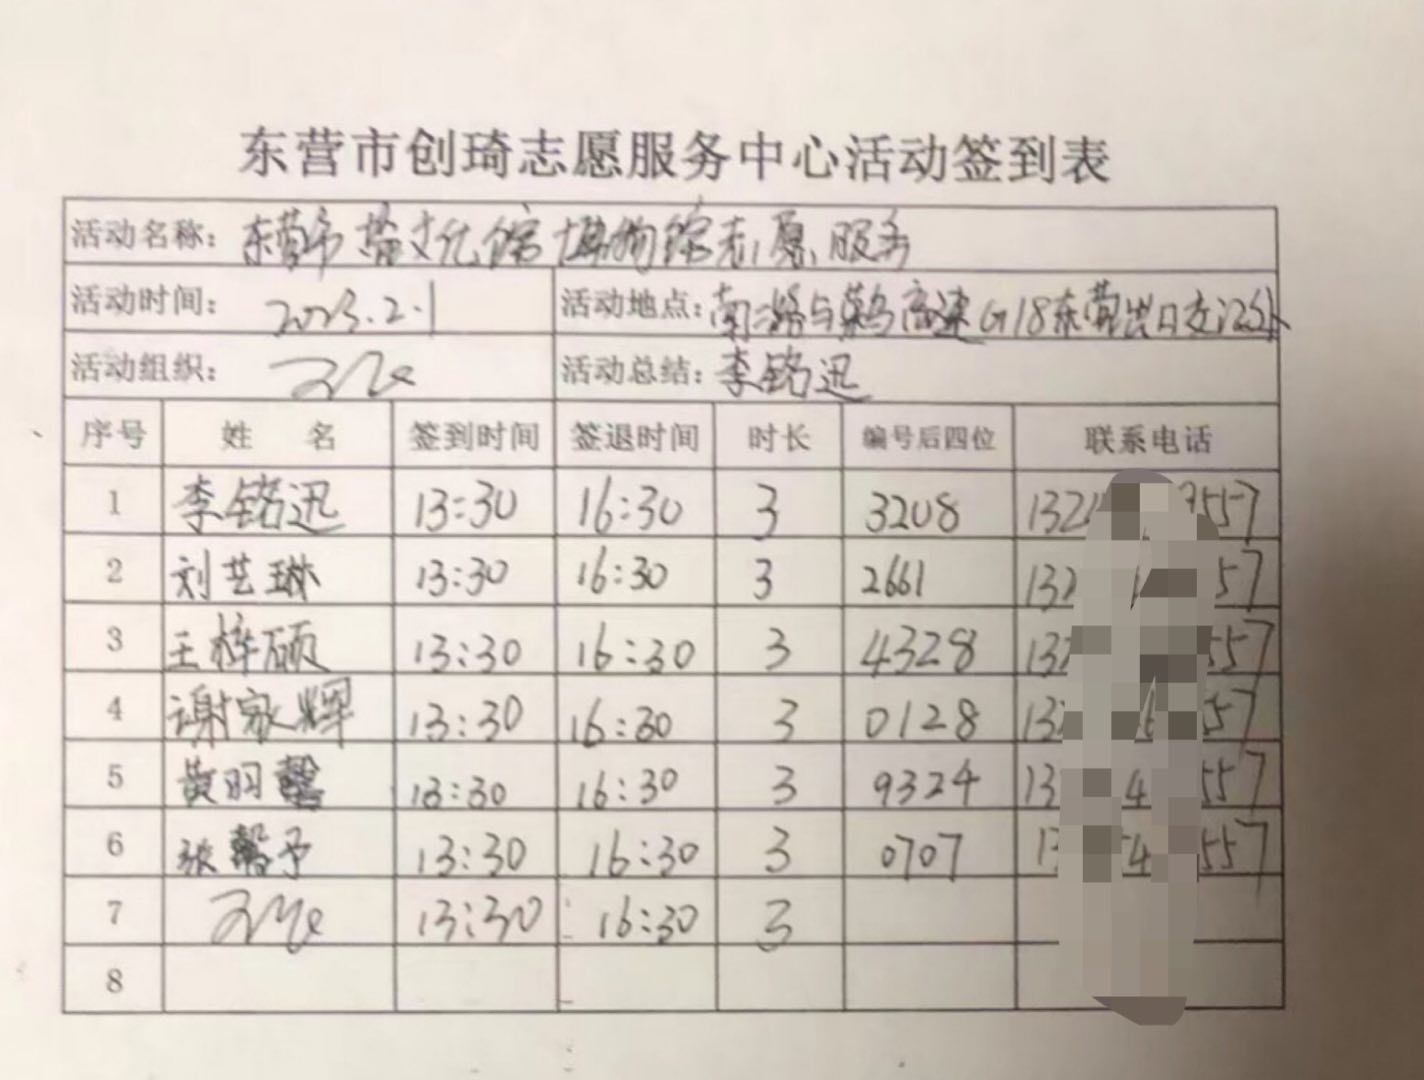 东营市创琦志愿服务中心活动签到表
活动名称：东营市盐文化馆博物馆志愿服务
活动时间：2023.2.1 活动地点：南二路与荣乌高速G18东营出口交汇处
活动组织： 活动总结：李铭迅
序号 姓 名 签到时间 签退时间 时长 编号后四位 联系电话
1 李铭迅 13:30 16:30 3 3208
2 刘艺琳 13:30 16:30 3 2661
3 王梓硕 13:30 16:30 3 4328
4 谢家辉 13:30 16:30 3 0128
5 黄羽馨 13:30 16:30 3 9324
6 张馨予 13:30 16:30 3 0707
7 13:30 16:30 3
8